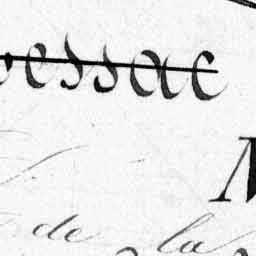 essac
de la